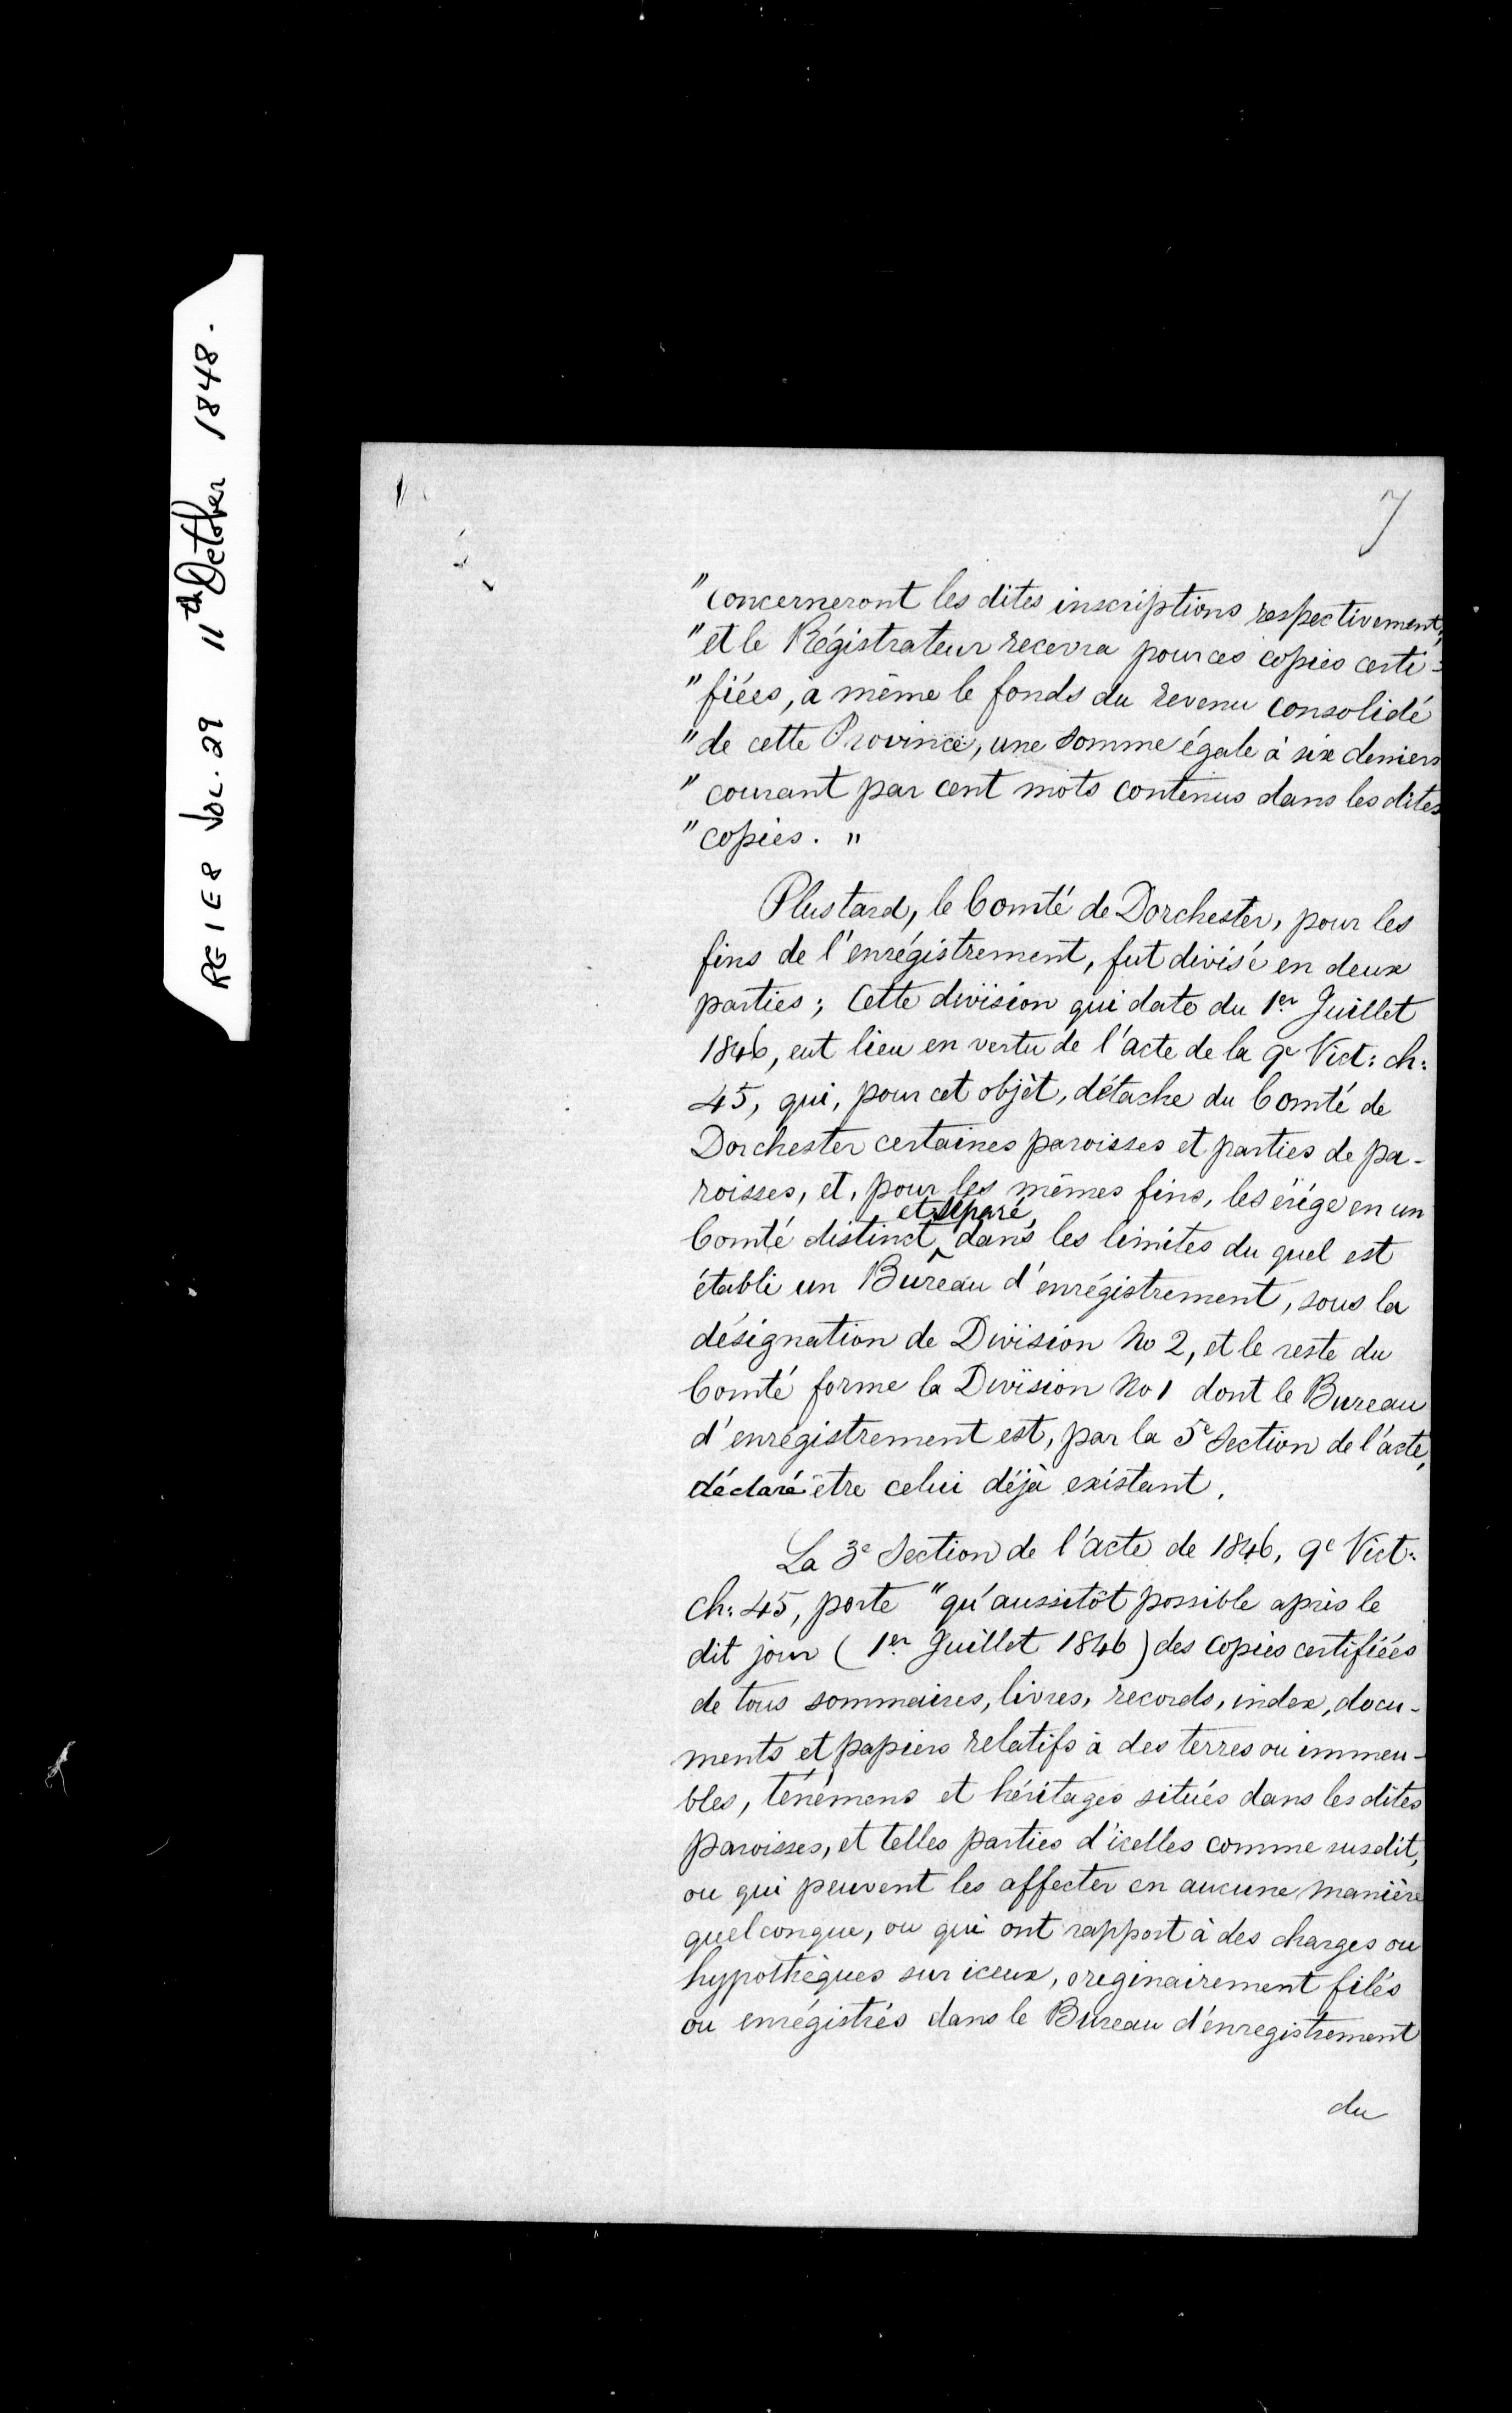 RG 1 E 8 Vol. 29 11th October 1848.
7
"concerneront les dites inscriptions respectivement,
"et le Régistrateur recevra pour ces copies certi-
"fiées, à même le fonds du revenu consolidé
"de cette Province, une somme égale à six deniers
"courant par cent mots contenus dans les dites
"copies."
Plus tard, le Comté de Dorchester, pour les
fins de l'enrégistrement, fut divisé en deux
parties; Cette division qui date du 1er Juillet
1846, eut lieu en vertu de l'acte de la 9e Vict: ch:
45, qui, pour cet objèt, détache du Comté de
Dorchester certaines paroisses et parties de pa-
roisses, et, pour les mêmes fins, les érige en un
Comté distinct et séparé, dans les limites du quel est
établi un Bureau d'enrégistrement, sous la
désignation de Division No 2, et le reste du
Comté forme la Division No 1 dont le Bureau
d'enrégistrement est, par la 5e Section de l'acte,
déclaré être celui déjà existant.
La 3e Section de l'acte de 1846, 9e Vict:
ch: 45, porte "qu'aussitôt possible après le
dit jour (1er Juillet 1846) des copies certifiées
de tous sommaires, livres, records, index, docu-
ments et papiers relatifs à des terres ou immeu-
bles, ténémens et héritages situés dans les dites
paroisses, et telles parties d'icelles comme susdit,
ou qui peuvent les affecter en aucune manière
quelconque, ou qui ont rapport à des charges ou
hypothèques sur iceux, originairement filés
ou enrégistrés dans le Bureau d'enregistrement
du